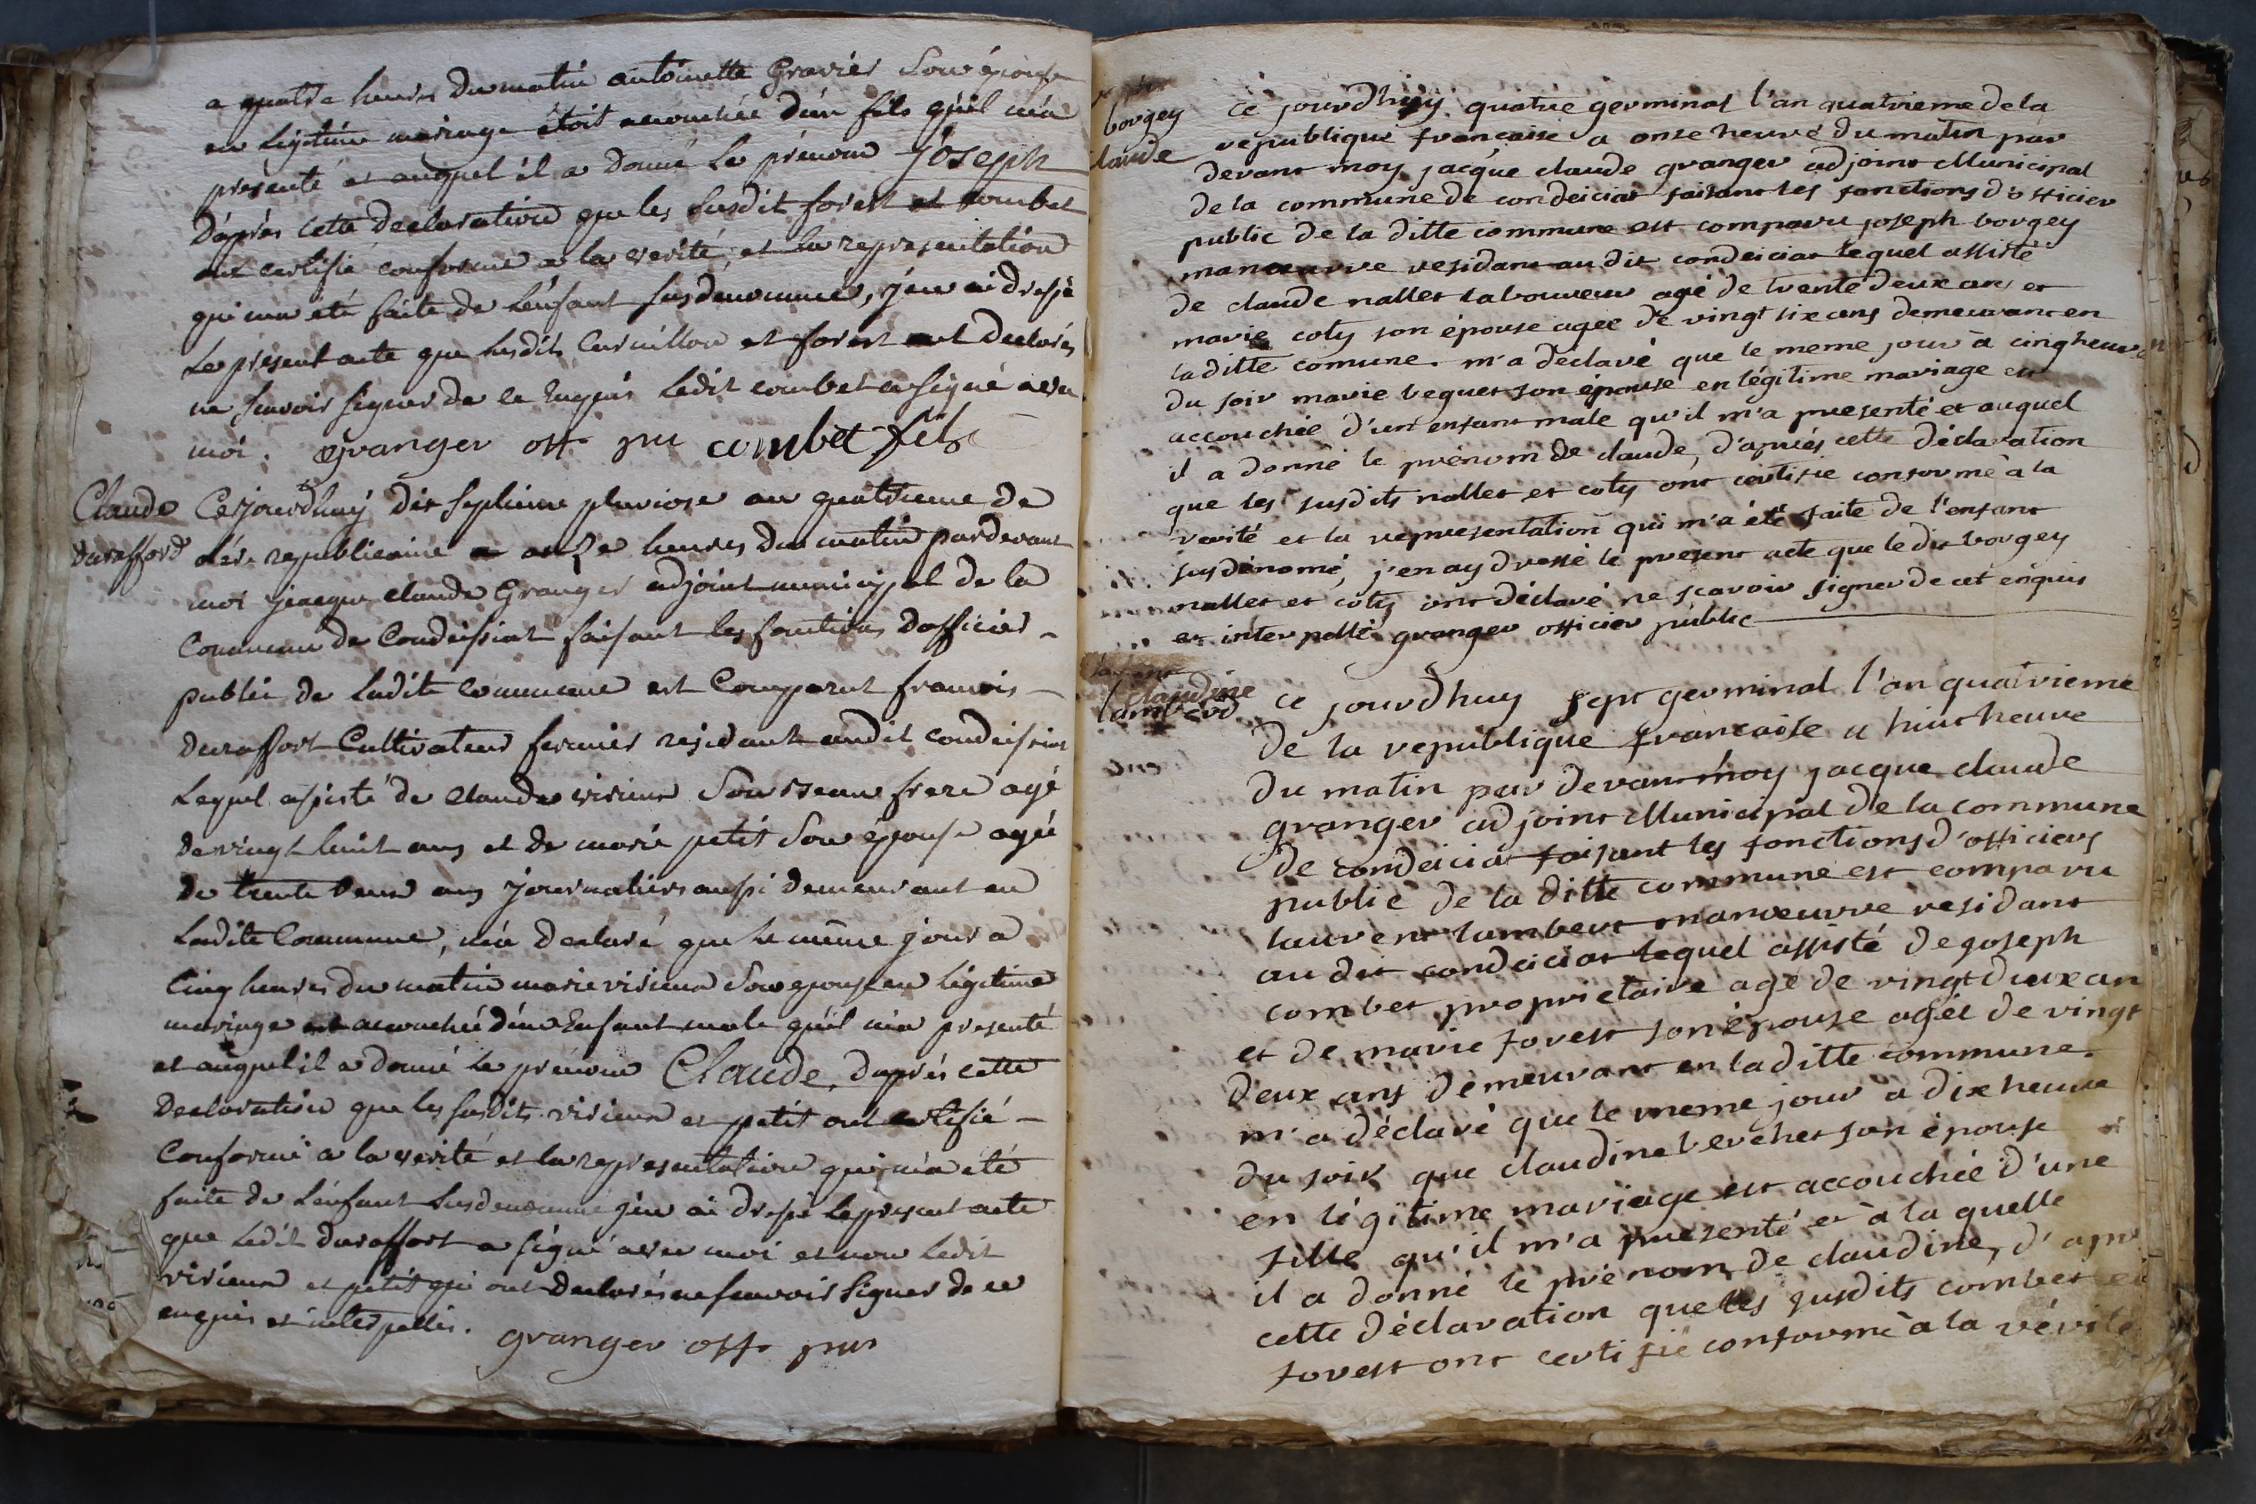 a quatre heures du matin antoinette Gravier Son épouse
en Legitime mariage étoit accouchée d'un fils qu'il m'a
presenté et auquel il a Donné Le prénom joseph
D'après cette Declaration que les susdit forest et combet
ont certifié conforme a la verité, et la representation
qui m'a été faite de L'enfant susdenommé, j'en ai dressé
Le present acte que susdits et forest ont declarés
ne savoir signer de ce Enquis Ledit combet a signé avec
moi. granger off pu combet fils
Claude
Durafford
Cejourdhuy dix septieme pluviose an quatrieme de
l'ére republicaine a onze heures du matin pardevant
moi jacque claude Granger adjoint municipal de la
Commune de Condeissiat faisant les fonctions D'officier
public de Ladite commune est Comparut francois
Duraffort Cultivateur fermier residant audit condeissiat
Lequel assisté de Claude visieux Son beau frere agé
de vingt huit ans et de marie petit Son épouse agée
de trente deux ans journaliers aussi demeurant en
Ladite Commune, m'a declaré que le même jour a
Cinq heures du matin marie visieux Son epouse en legitime
mariage est accouchée d'un Enfant male qu'il m'a presenté
et auquel il a donné Le prénom Claude, d'après cette
Declaration que les susdits visieux et petit ont certifié
Conforme a la verité et la representation qui m'a été
faite de L'enfant susdenommé j'en ai dressé Le present acte
que Ledit duraffort a signé avec moi et non Ledit
visieux et petit qui ont declarés ne savoir signer de ce
enquis et interpellés. granger off pu
borgey
claude
ce jourdhuy quatre germinal l'an quatrieme de la
republique francaise a onse heure du matin par
devant moy jacque claude granger adjoint Municipal
de la commune de condeiciat faisant les fonctions d'officier
public de la ditte commune est comparu joseph borgey
manœuvre residant au dit condeiciat lequel assisté
de claude nallet laboureur agé de trente deux ans et
marie coty son épouse agée de vingt six ans demeurant en
la ditte comune. m'a déclaré que le meme jour à cinq heure
du soir marie beguet son epouse en légitime mariage est
accouchée d'un enfant male qu'il m'a presenté et auquel
il a donné le prénom de claude, d'après cette déclaration
que les susdits nallet et coty ont certifié conforme à la
verité et la representation qui m'a été faite de l'enfant
susdénomé, j'en ay dressé le present acte que le dit borgey
nallet et coty ont déclaré ne scavoir signer de cet enquis
et interpellé granger officier public
claudine
lamberd
ce jourdhuy sept germinal l'an quatrieme
de la republique francaise a huit heure
du matin par devant moy jacque claude
granger adjoint Municipal de la commune
de condeiciat faisant les fonctions d'officiers
public de la ditte commune est comparu
laurent lambert manœuvre residant
au dit condeiciat lequel assisté de joseph
combet proprietaire agé de vingt deux an
et de marie forest son épouse agéé de vingt
deux ans demeurant en la ditte commune.
m'a déclaré que le meme jour a dix heure
du soir que claudine berchet son épouse
en légitime mariage est accouchée d'une
fille qu'il m'a presenté et à la quelle
il a donné le prénom de claudine, d'apr
cette déclaration que les susdits combet et
forest ont certifié conforme à la vérité